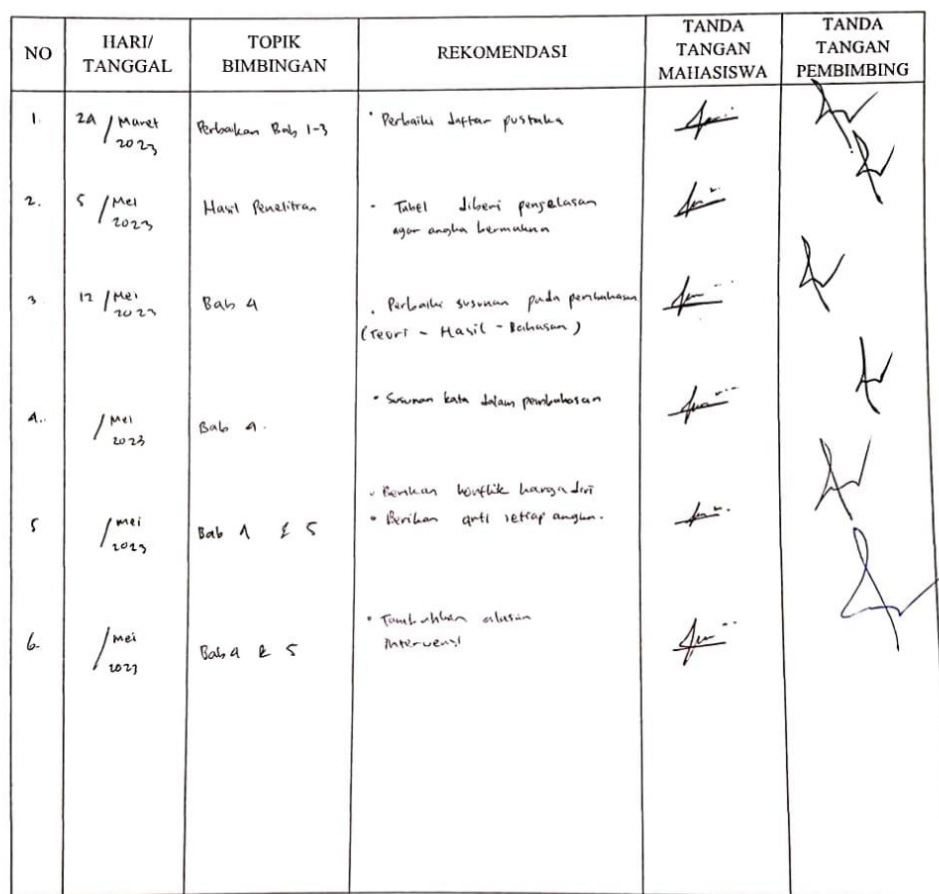 NO
HARI/
TANGGAL
TOPIK
BIMBINGAN
REKOMENDASI
TANDA
TANGAN
MAHASISWA
TANDA
TANGAN
PEMBIMBING
1.
24 / Maret
2023
Perbaikan Bab 1-3
• Perbaiki daftar pustaka
2.
5 / Mei
2023
Hasil Penelitian
- Tabel diberi penjelasan
agar angka bermakna
3.
12 / Mei
2023
Bab 4
. Perbaiki susunan pada pembahasan
(Teori - Hasil - Bahasan)
4..
/ Mei
2023
Bab 4.
• Susunan kata dalam pembahasan
5
/ mei
2023
Bab & 5
• Berikan konflik harga diri
• Berikan arti setiap angka.
6.
/ mei
2023
Bab 4 & 5
• Tambahkan alasan
intervensi